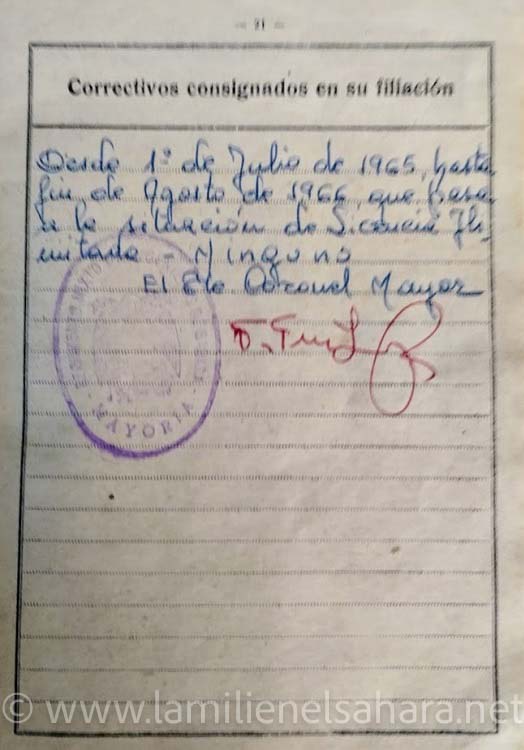 — 21 —
Correctivos consignados en su filiación
Desde 1º de Julio de 1965, hasta
fin de Agosto de 1966, que pasa
a la situación de Licencia Ili-
mitada - Ninguno
El Tte Coronel Mayor
MAYORIA
© www.lamilienelsahara.net